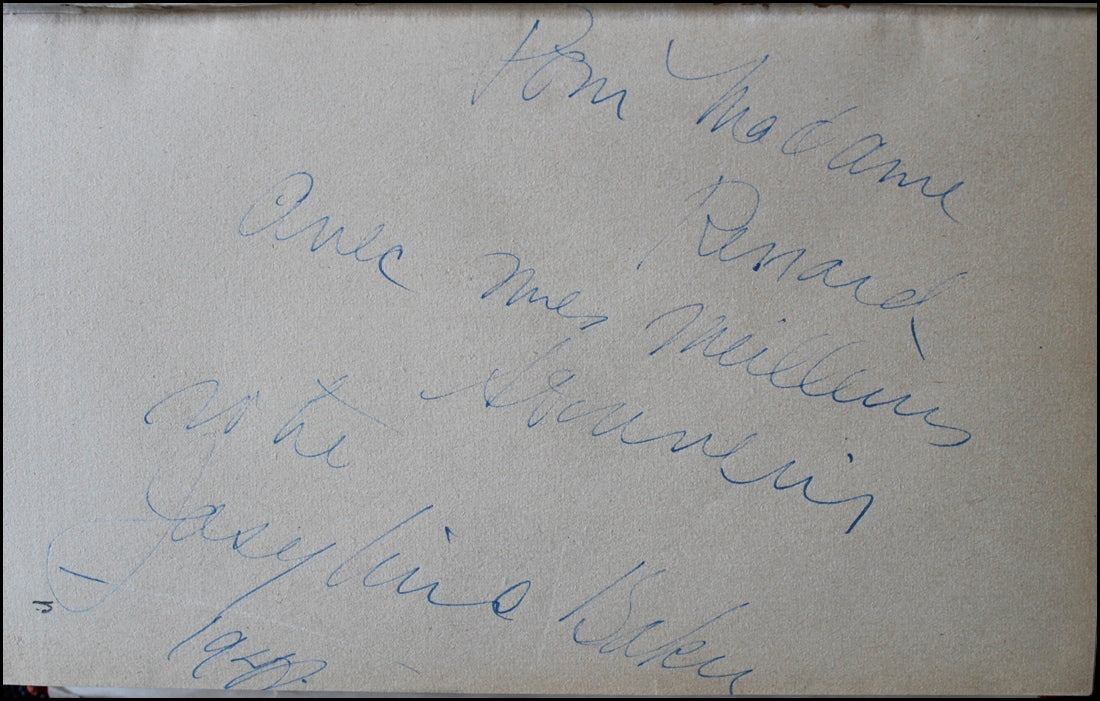 Pour Madame
Renard
avec mes meilleurs
Souvenirs
votre
Josephine Baker